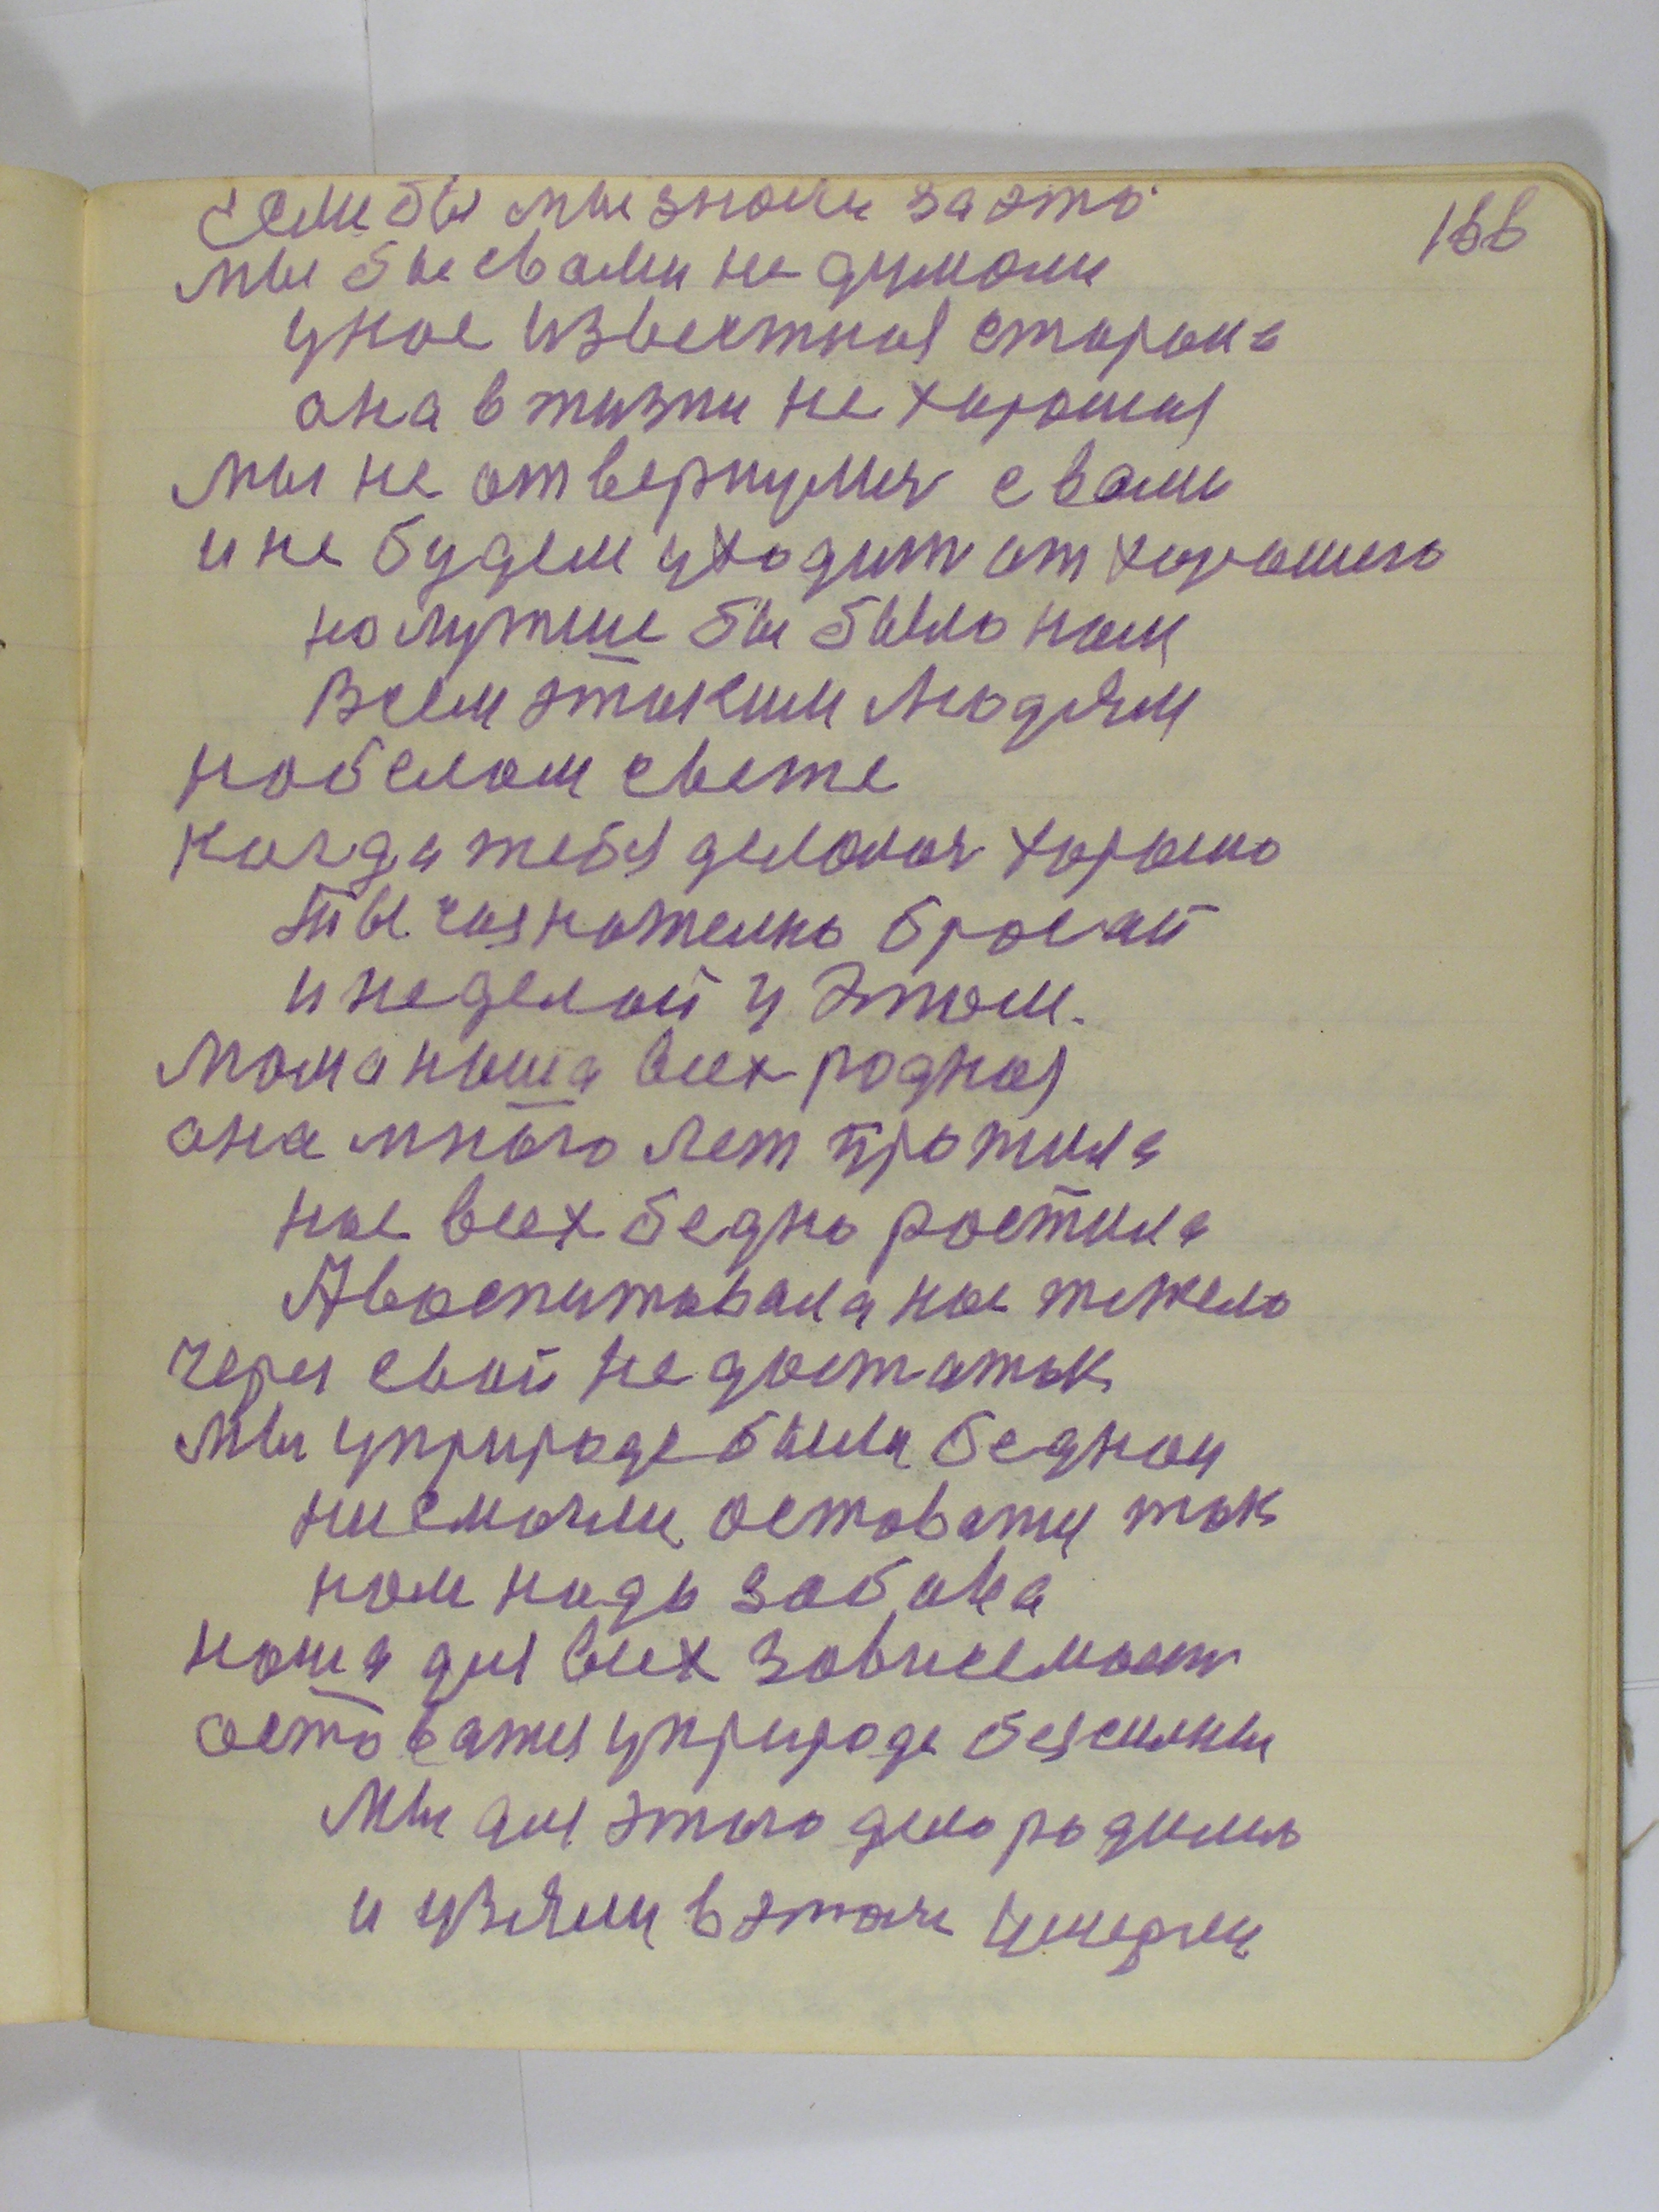 Если бы мы знали за это 166
мы бы свами не думали
унас известная старона
она в жизни не хорошая
мы не отвернулися с вами
и не будем уходит от хорошего
но лутше бы было нам
Всем этаким людям
на белом свете
когда тебя делалас хорошо
ты сознателно бросай
и не делай у этом.
мама наша всех родная
она много лет прожила
нас всех бедно ростила
А воспитовала нас тяжело
через свой недостаток
мы уприроде были бедной
ни смогли оставатц так
нам надо забота
наша для всех зависемост
остоватся уприроде безсилны
мы для этого дело родилис
и узяли в этаго